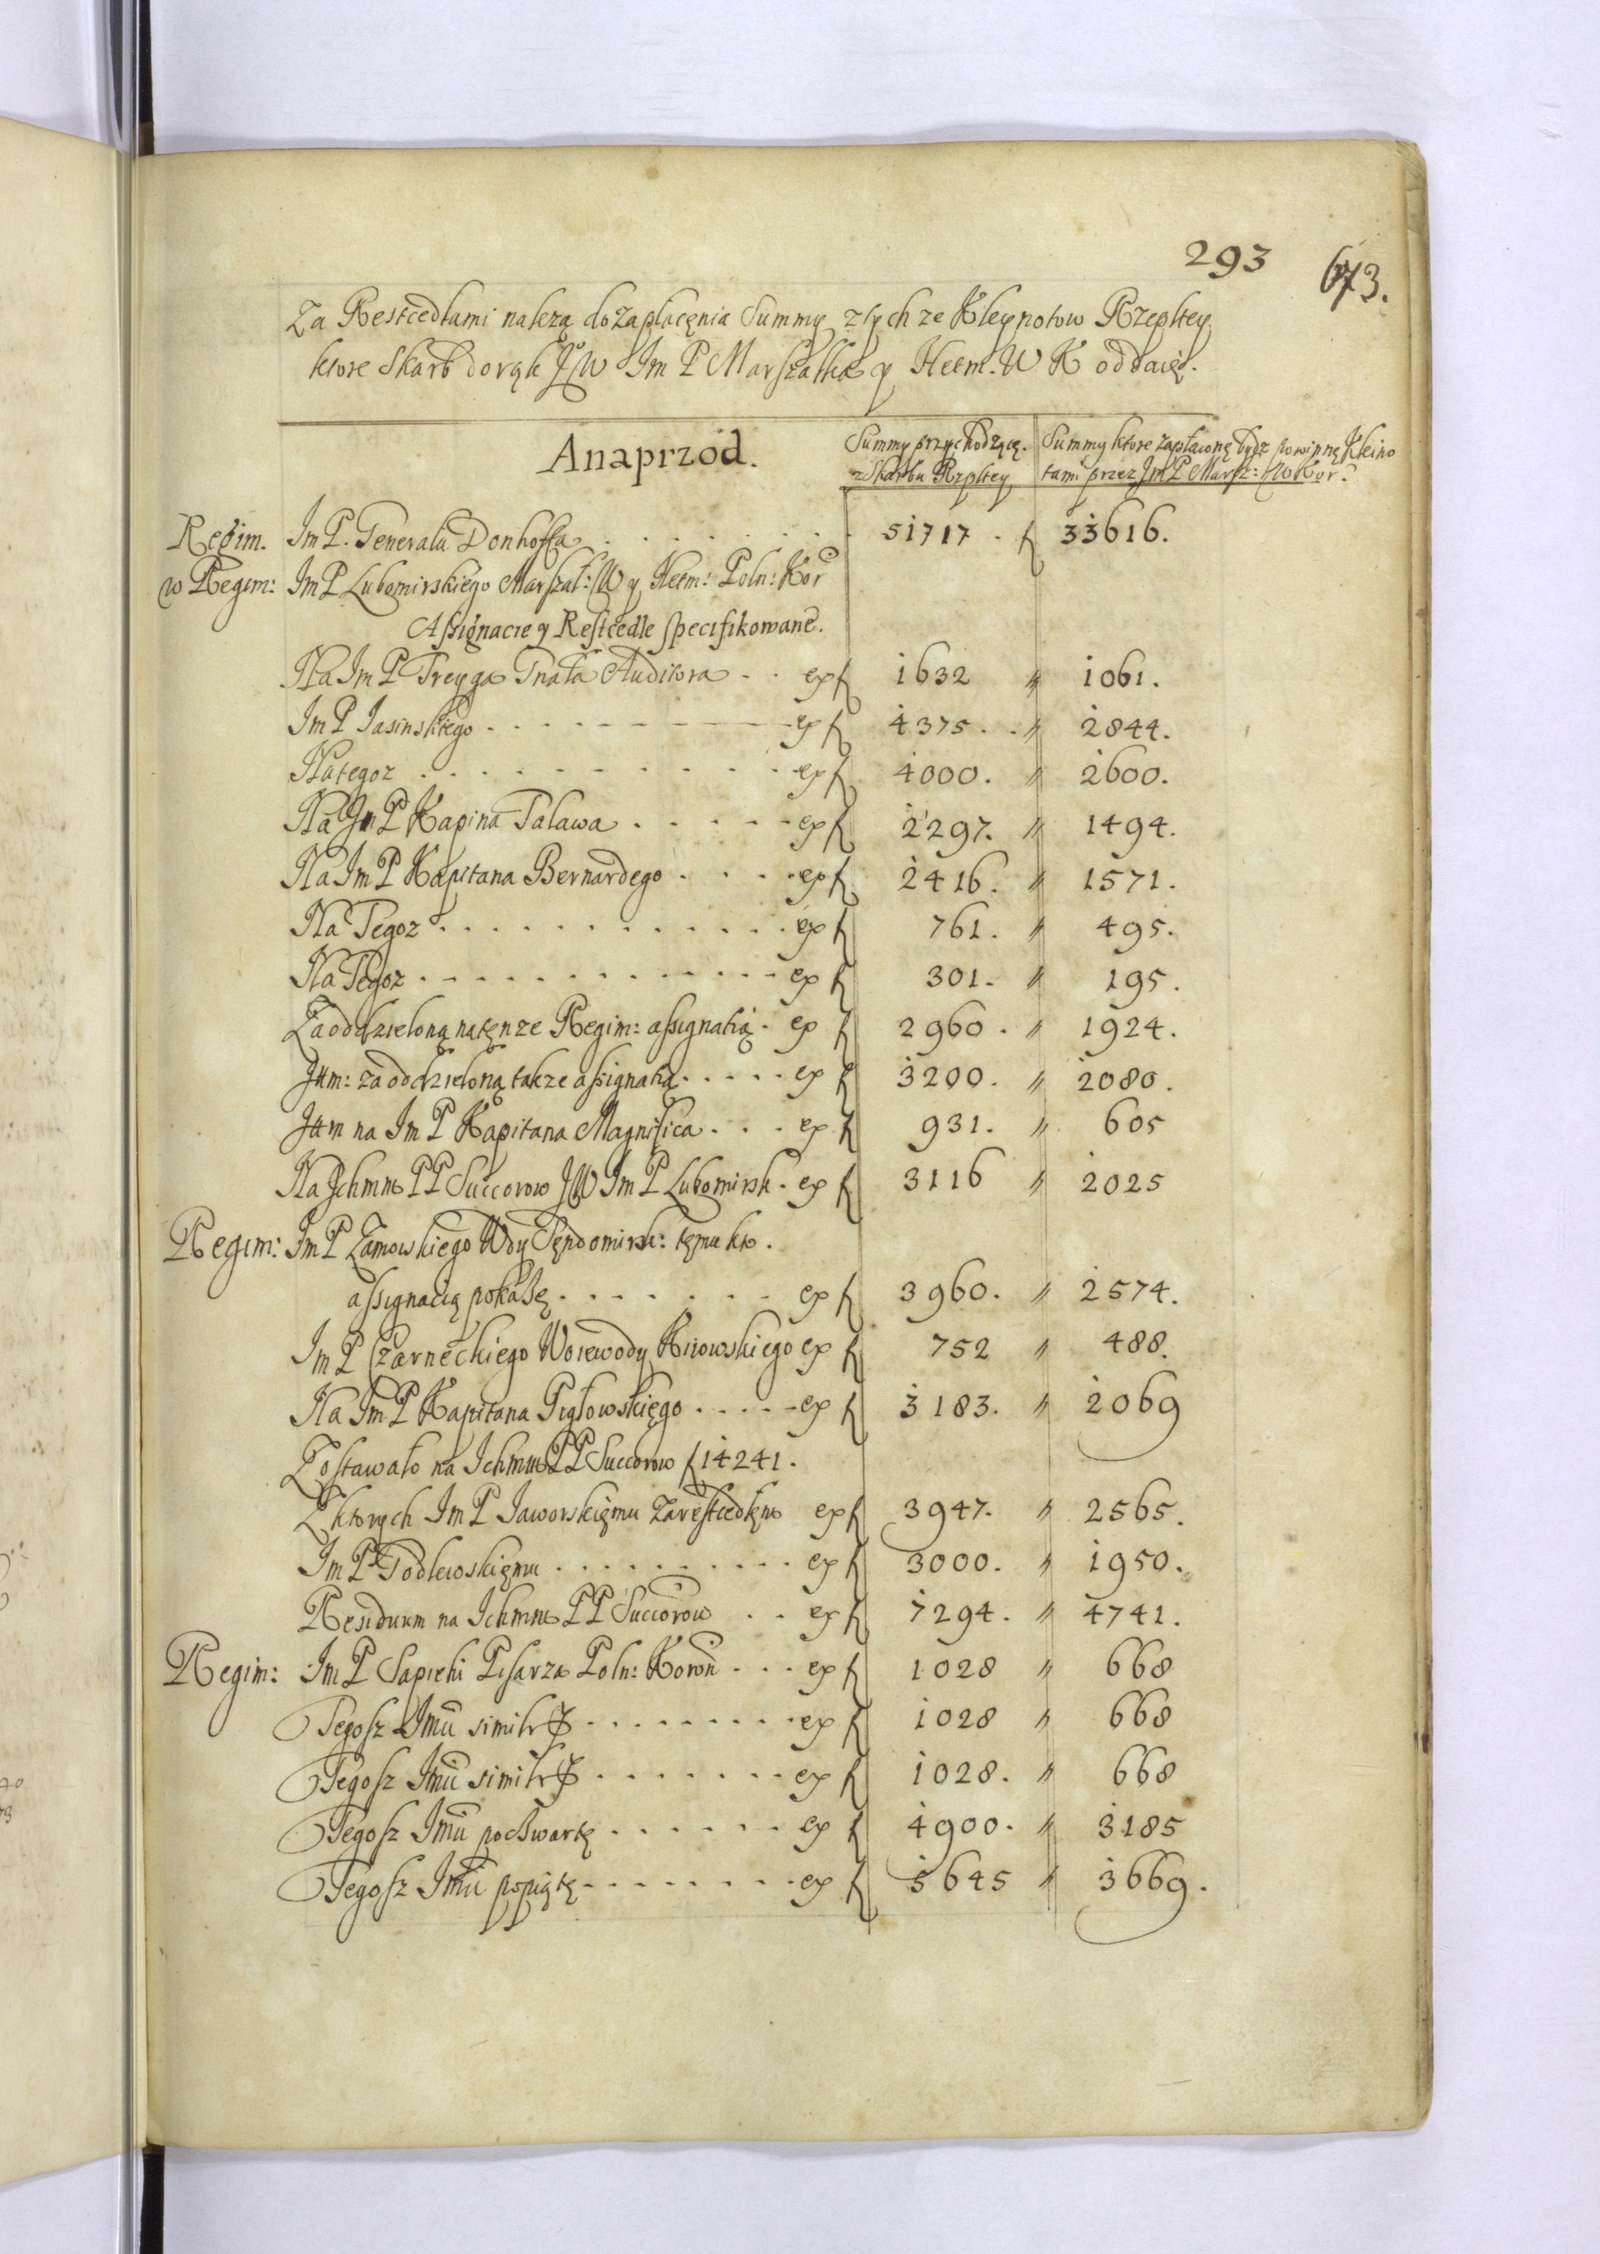 293 673.
Za Restcedłami nalezą do zapłacęnia Summy z tych ze Kleynotow Rzepltey
ktore Skarb do rąk JW Im P Marszałka y Hetm. W K oddaię.
Anaprzod.
Summy przychodzącę z Skarbu Rzpltey
Summy ktore zapłaconę bydz powinnę Kleino
tami przez Im P Marsz: Kor?
Regim. Im P. Generała Donhoffa . . . . . . . 51717 . f 33616.
w Regim: Im P Lubomirskiego Marszał: W y Hetm: Poln: Kor
Assignacie y Restcedle specifikowane.
Na Im P Freyga Gnała Auditora . . ex f 1632 〃 1061.
Im P Jasinskiego . . . . . ex f 4375. . 〃 2844.
Na tegoz . . . . . . . . ex f 4000. 〃 2600.
Na Im P Kapina Talawa . . . . . ex f 2297. 〃 1494.
Na Im P Kapitana Bernardego . . . . ex f 2416. 〃 1571.
Na Tegoz . . . . . . . . ex f 761. 〃 495.
Na Tegoz . . . . . . . . ex f 301. 〃 195.
Za oddzieloną na tęnze Regim: assignatią . ex f 2960 . 〃 1924.
Ittm: za oddzieloną takze assignatią . . . . . ex f 3200. 〃 2080.
Ittm na Im P Kapitana Magnifica . . . ex f 931. 〃 605
Na Ichmm PP Succorow JW Im P Lubomirsk . ex f 3116 〃 2025
Regim: Im P Zamowskiego Wdy Sędomirsk: tęmu kto .
assignacią pokaże . . . . . . . ex f 3960. 〃 2574.
Im P Czarneckiego Woiewody Kiiowskiego ex f 752 〃 488.
Na Im P Kapitana Pigłowskięgo . . . . . ex f 3183. 〃 2069
Zostawało na Ichmm PP Succorow f 14241.
Z ktorych Im P Jaworskięmu za restcedłęm ex f 3947. 〃 2565.
Im P Godlewskięmu . . . . . . . . . ex f 3000. 〃 1950.
Residuum na Ichmm PP Succorow . . ex f 7294. 〃 4741.
Regim: Im P Sapiehi Pisarza Poln: Koron . . . ex f 1028 〃 668
Tegosz Imu simitr . . . . . . . . ex f 1028 〃 668
Tegosz Imu simitr . . . . . . . ex f 1028. 〃 668
Tegosz Imu poczwartę . . . . . . ex f 4900. 〃 3185
Tegosz Imu popiątę . . . . . . . . ex f 5645 〃 3669.